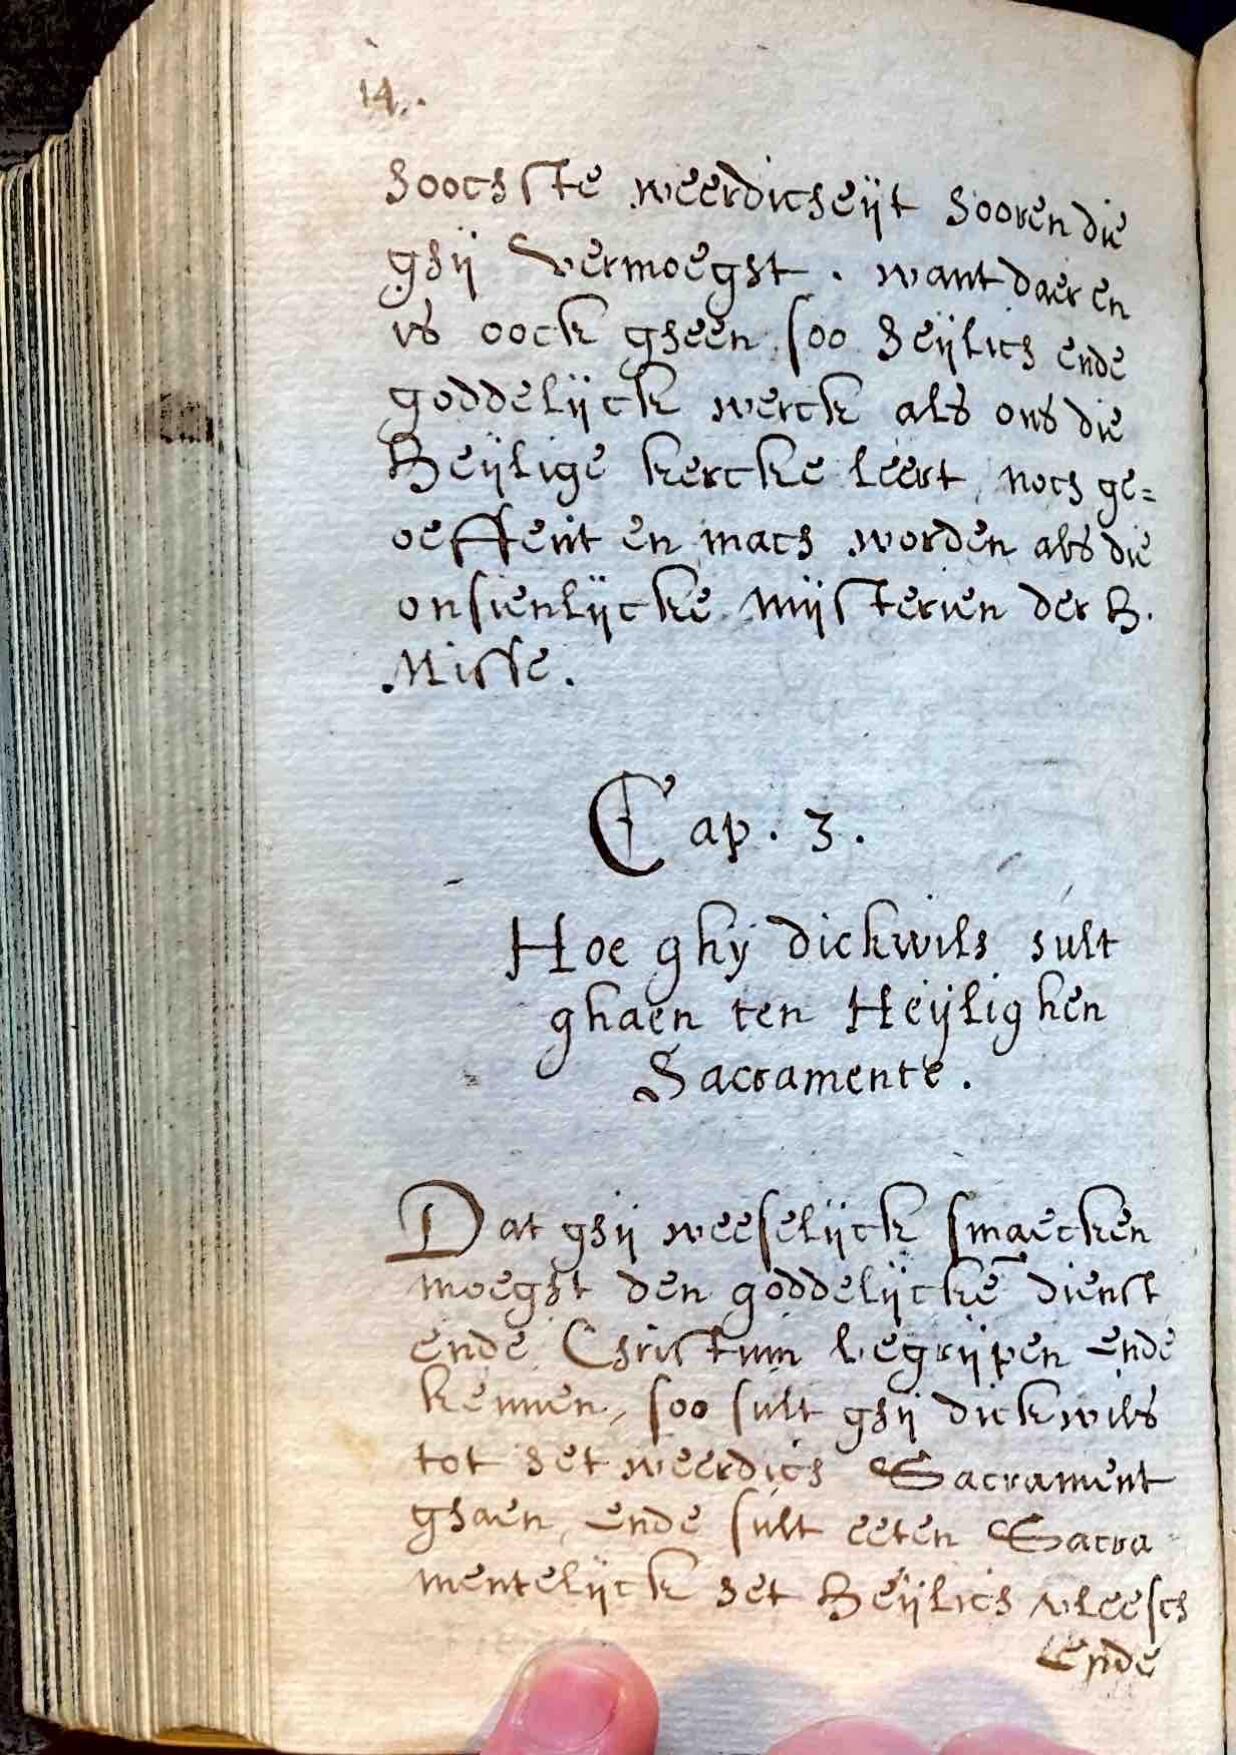 14.
hoochste weerdicheÿt hooren die
ghÿ vermoeghst. want daer en
is oock gheen soo heÿlich ende
goddelÿck werck als ons die
Heÿlige kercke leert, noch ge=
oeffent en mach worden als die
onsienlÿcke mÿsterien der H.
Misse.
Cap. 3.
Hoe ghÿ dickwils sult
ghaen ten Heÿlighen
Sacramente.
Dat ghÿ weeselÿck smaecken
moeght den goddelÿckē dienst
ende Christum begrÿpen ende
kennen, soo sult ghÿ dickwils
tot het weerdich Sacrament
ghaen, ende sult eeten Sacra
mentelÿck het Heÿlich vleesch
Ende